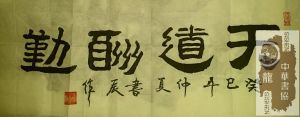 天道酬勤
癸巳年仲夏書辰作
中華書協
龍